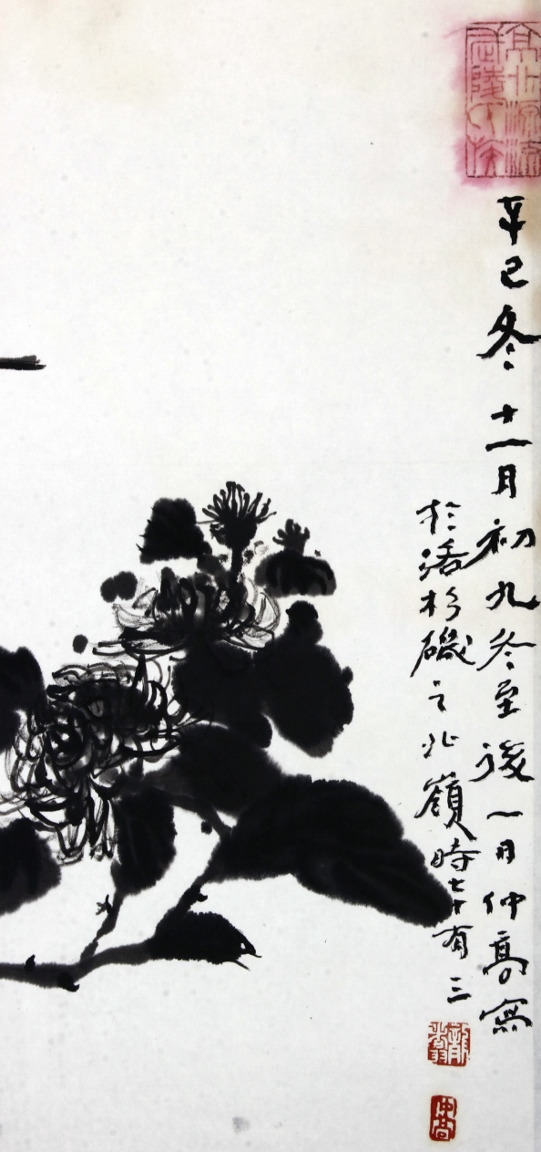 辛巳冬十一月初九冬至後一日仲高寫
於洛杉磯之北嶺時七十有三
仲高